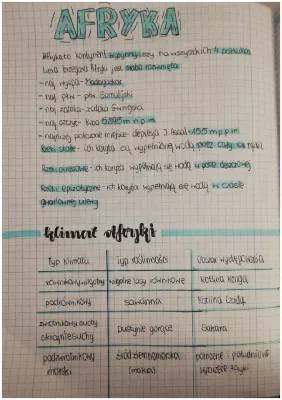 AFRYKA
Afryka to kontynent wysunięty na wszystkich 4 półkulach
Linia brzegowa Afryki jest słabo rozwinięta
- naj. wyspa - Madagaskar
- naj. płw - płw. Somalijski
- naj. zatoka - zatoka Gwinejska
- naj. szczyt - Kibo 5895 m n.p.m
- najniżej położone miejsce - depresja J. Assal - 155 m p.p.m
Rzeki stałe - ich koryta są wypełnione wodą przez cały rok
Rzeki okresowe - ich koryta wypełniają się wodą w porze deszczowej
Rzeki epizodyczne - ich koryta wypełniają się wodą w czasie
gwałtownej ulewy
klimat afryki
Typ klimatu Typ roślinności Obszar występowania
równikowy wilgotny wilgotne lasy równikowe Kotlina Konga
podrównikowy sawanna Kotlina Czadu
zwrotnikowy suchy pustynie gorące Sahara
skrajnie suchy
podzwrotnikowy śródziemnomorska północne i południowe
morski (makia) wybrzeże Afryki